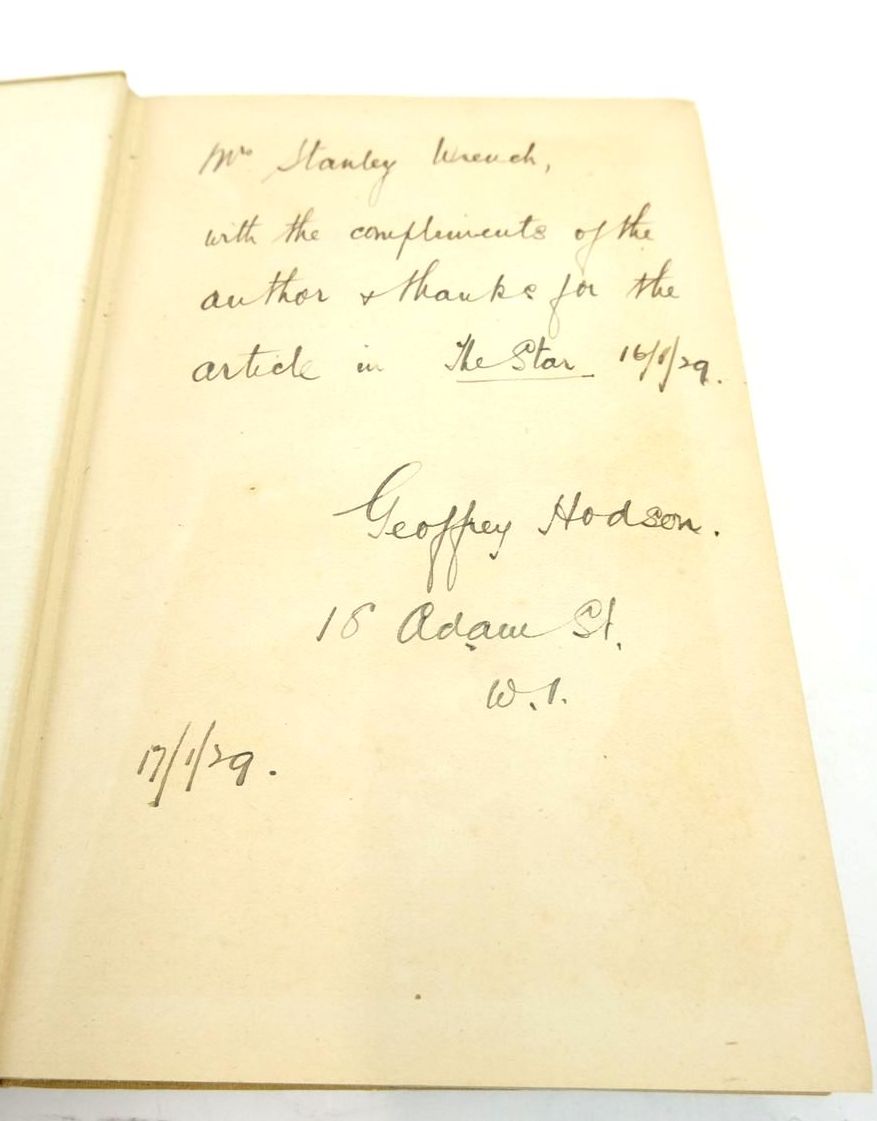 Mrs Stanley Wrench,
with the compliments of the
author & thanks for the
article in The Star 16/1/29.
Geoffrey Hodson.
16 Adam St.
W.1.
17/1/29.